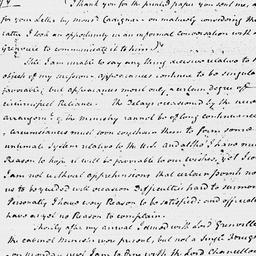 Thank you for the printed paper you sent me, a
for your Letter by mons.r Carignan - maturely considering the
latter I took an opportunity in an informal conversation with
Grenville to communicate it to him
Tho I am unable to say any thing decisive relative to t
objects of my mission - appearances continue to be singula
favorable; but appearances merit only a certain degree of
circumspect Reliance. The Delays occasioned by the new
arrangem.ts of the ministry cannot be of long continuance
circumstances must soon constrain them to form some
ultimate System relative to the U.S. and altho' I have much
Reason to hope it will be favorable to our wishes, yet I co
I am not without apprehensions that certain points no
us to be yielded will occasion Difficulties hard to surmo
Personally I have every Reason to be satisfied; and officially
have as yet no Reason to complain.
Shortly after my arrival I dined with Lord Grenville
the cabinet Ministers were present, but not a single Foreign
on monday next I am to Dine with the Lord Chancellor